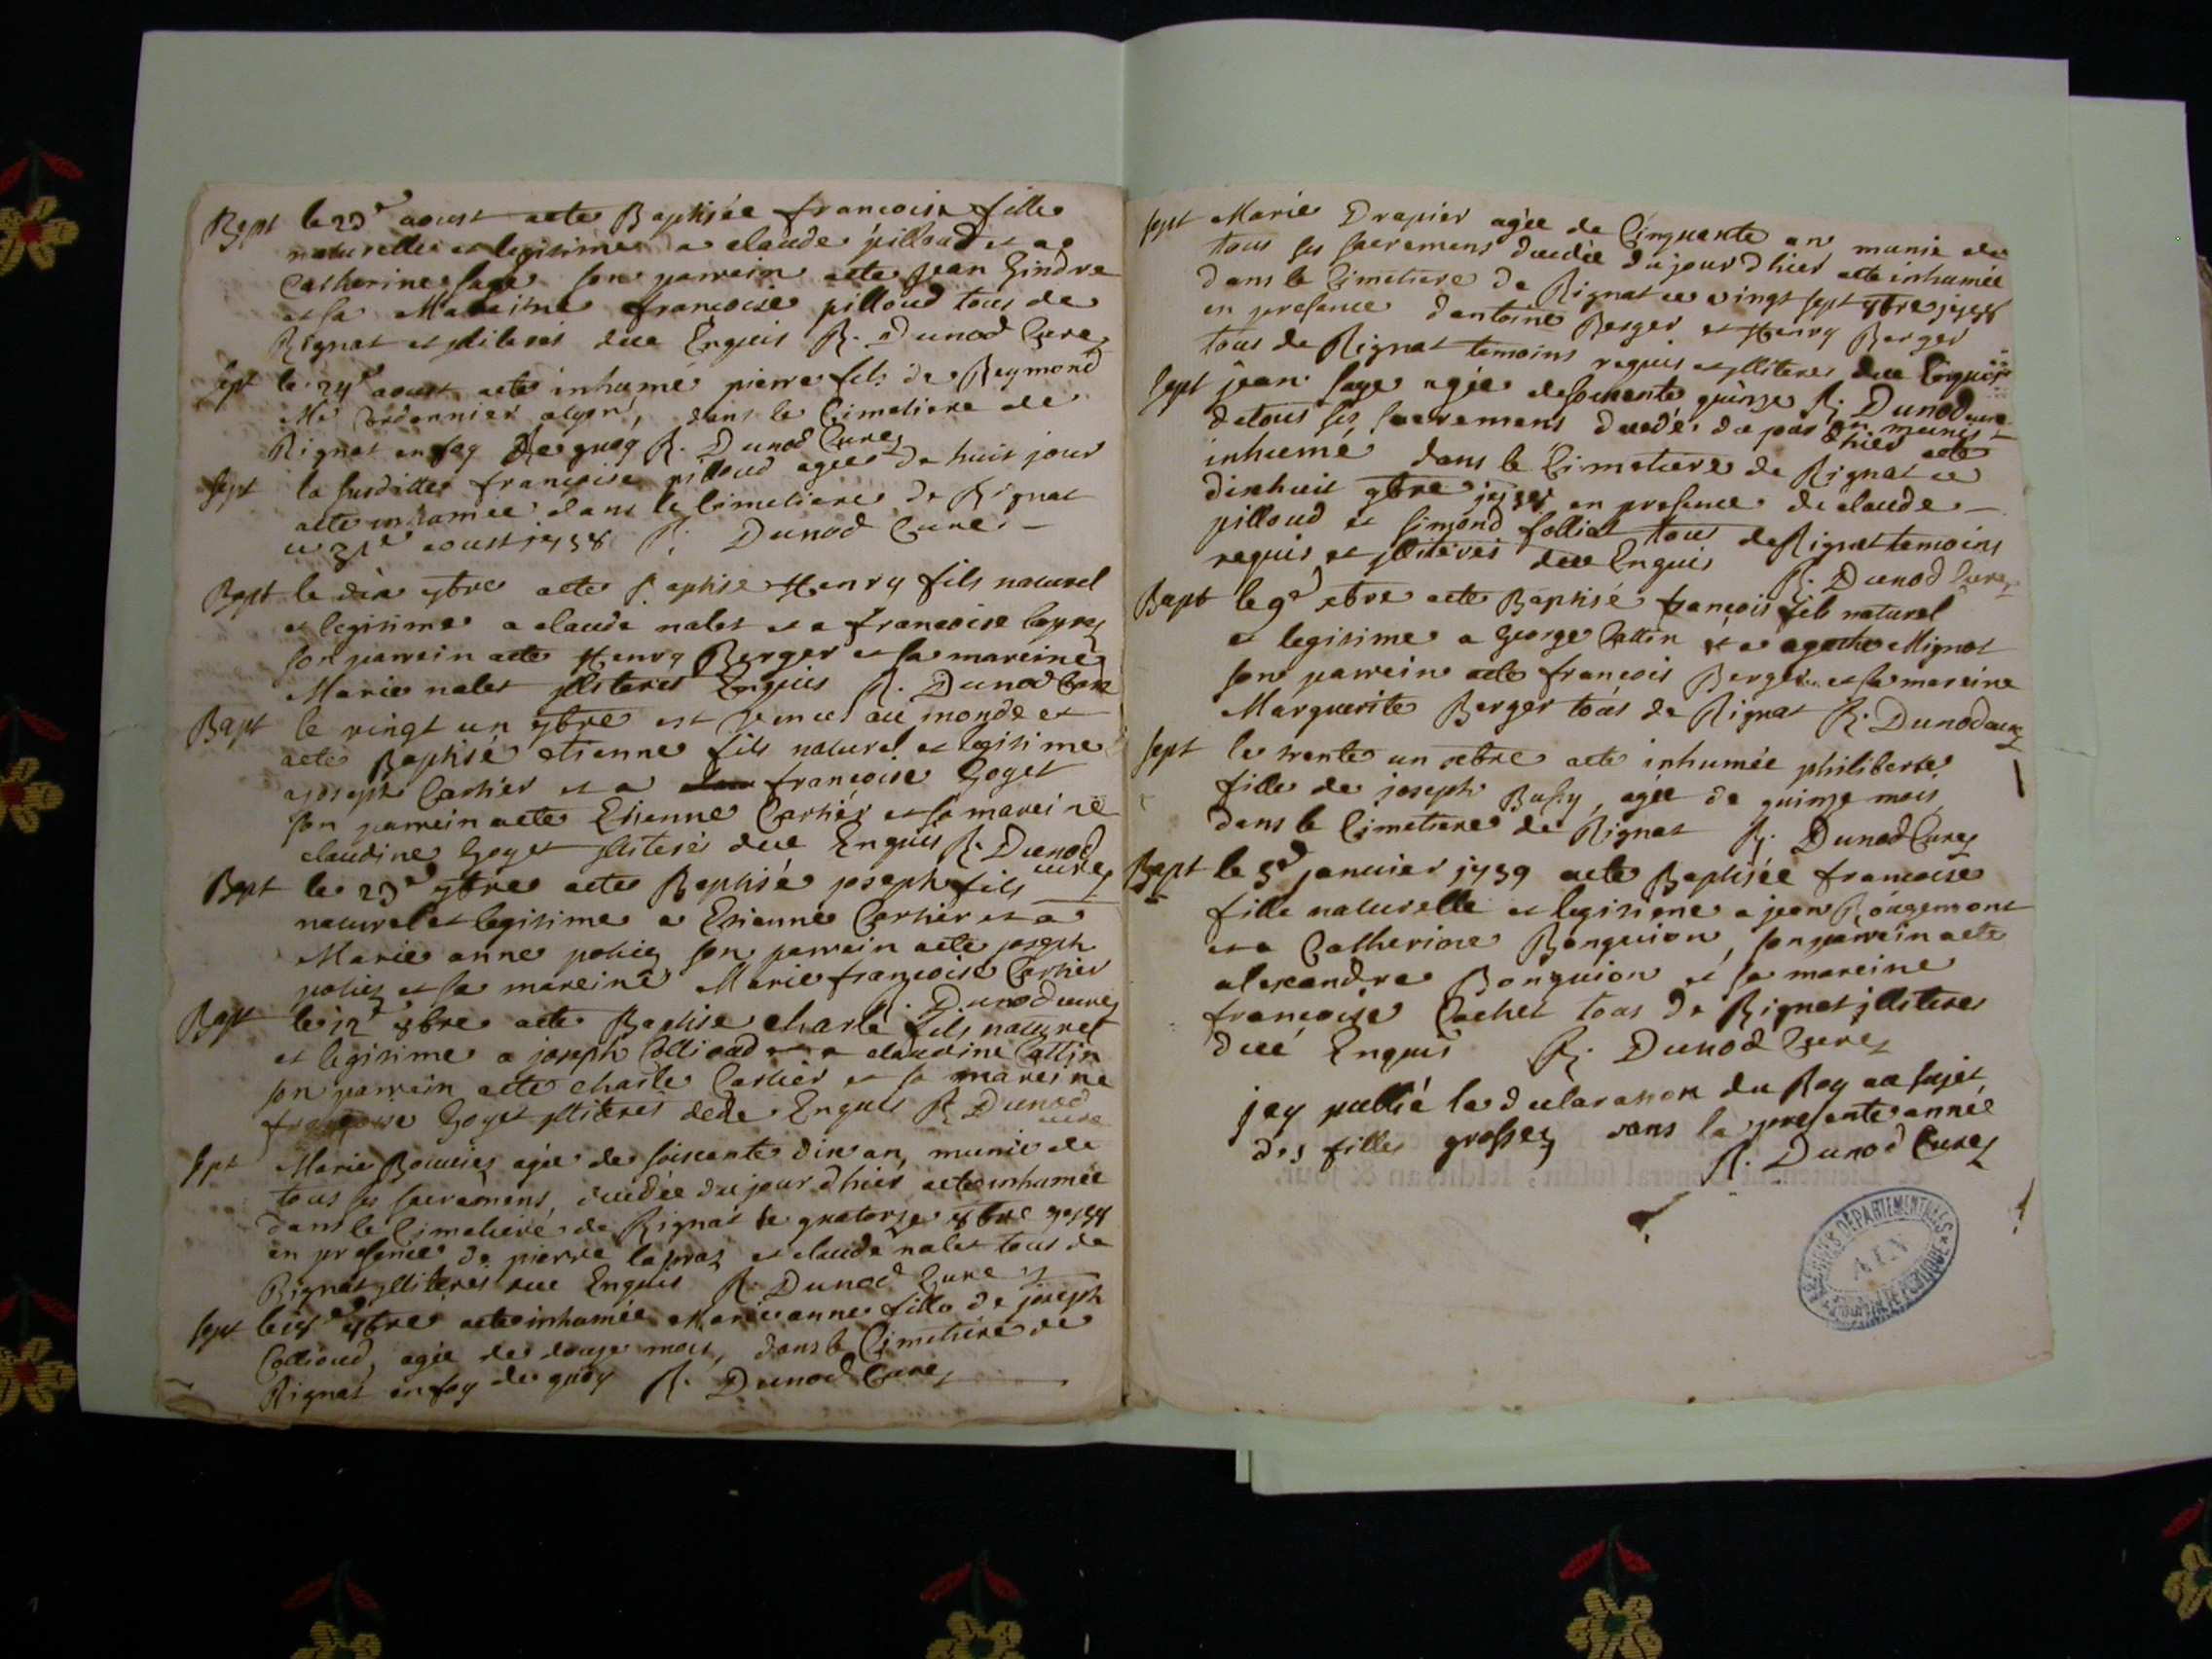 Bapt le 23e aoust a ete Baptisée francoise fille
naturelle et legitime a claude pilloud et a
Catherine sage son parrein a ete jean Gindre
et sa Mareine francoise pilloud tous de
Rignat et illiteres due Enquis R. Dunod Cure
sept le 24e aoust a ete inhumé pierre fils de Reymond
Me Cordonnier dans le Cimetiere de
Rignat en foy de quoy R. Dunod Cure
sept la susditte francoise pilloud agee de huit jour
a ete inhumée dans le Cimetiere de Rignat
ce 31e aoust 1738 R. Dunod Cure
Bapt le dix 7bre a ete Baptise Henry fils naturel
et legitime a claude nalet et a francoise
son parrein a ete Henry Berger et sa mareine
Marie nalet illiteres Enquis R. Dunod Cure
Bapt le vingt un 7bre est venu au monde et
a ete Baptisé etienne fils naturel et legitime
a joseph Carthier et a francoise Goget
son parrein a ete Etienne Carthier et sa mareine
claudine Goget illiteres due Enquis R. Dunod
cure
Bapt le 23e 7bre a ete Baptisé joseph fils
naturel et legitime a Etienne Carthier et a
Marie anne son parrein a ete joseph
et sa mareine Marie francoise Carthier
R. Dunod cure
Bapt le 12e 8bre a ete Baptise charle fils naturel
et legitime a joseph Collioud et a claudine Cattin
son parrein a ete charle Carthier et sa mareine
francoise Goget illiteres Enquis R. Dunod
cure
sept Marie agée de soixante dix an, munie de
tous ses sacremens, decedée du jour d hier a ete inhumée
dans le Cimetiere de Rignat le quatorze 8bre 1738
en presence de pierre lapraz et claude nalet tous de
Rignat illiteres due Enquis R. Dunod Cure
sept le 7bre a ete inhumée Marie anne fille de joseph
Collioud, agée de douze mois, dans le Cimetiere de
Rignat en foy de quoy R. Dunod Cure
sept Marie Drapier agée de Cinquante an munie de
tous ses sacremens decedée du jour d hier a ete inhumée
dans le Cimetiere de Rignat ce vingt sept 1738
en presence d antoine Berger et Henry Berger
tous de Rignat temoins requis et illiteres due Enquis
R. Dunod cure
sept jean sage agée de soixante quinze an munis
de tous ses sacremens decedé du jour d hier a ete
inhumé dans le Cimetiere de Rignat ce
dixhuit 9bre 1738 en presence de claude
pilloud et simond folliat tous de Rignat temoins
requis et illiteres due Enquis
R. Dunod Cure
Bapt le 9e xbre a ete Baptisé françois fils naturel
et legitime a George Cattin et a agathe Mignot
son parrein a ete francois Berger et sa mareine
Marguerite Berger tous de Rignat R. Dunod cure
sept le trente un xbre a ete inhumée philiberte
fille de joseph Bussy, agée de quinze mois
dans le Cimetiere de Rignat R. Dunod Cure
Bapt le 5e janvier 1739 a ete Baptisée francoise
fille naturelle et legitime a jean Rougemont
et a Catherine Bonquion, son parrein a ete
alexandre Bonquion et sa mareine
francoise Cachet tous de Rignat illiteres
due Enquis R. Dunod Cure
jey publié la declaration du Roy au sujet
des filles grosses dans la presente année
R. Dunod Cure
ARCHIVES DÉPARTEMENTALES
AIN